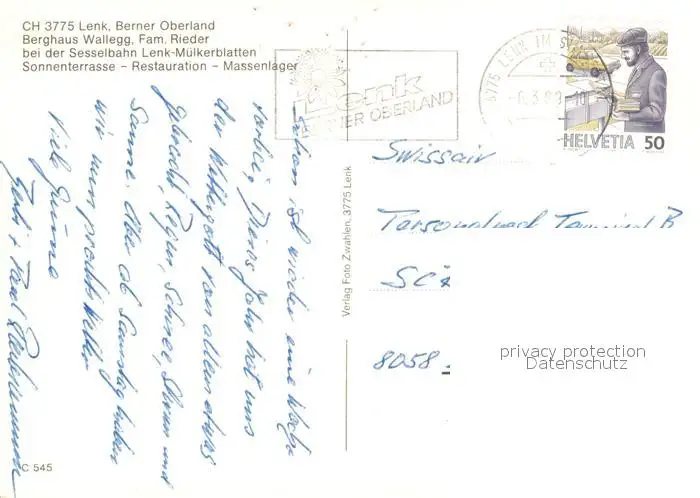 CH 3775 Lenk, Berner Oberland
Berghaus Wallegg, Fam. Rieder
bei der Sesselbahn Lenk-Mülkerblatten
Sonnenterrasse – Restauration – Massenlager
Schon ist wieder eine Woche
vorbei. Dieses Jahr hat uns
der Wettergott von allem etwas
gebracht, Regen, Schnee, Sturm und
Sonne. Aber ab Samstag haben
wir nun prachts Wetter
Viel Grüsse
Lenk
BERNER OBERLAND
3775 LENK IM
-6.3.89-10
HELVETIA 50
Verlag Foto Zwahlen, 3775 Lenk
Swissair
Terminal B
8058.
privacy protection
Datenschutz
C 545